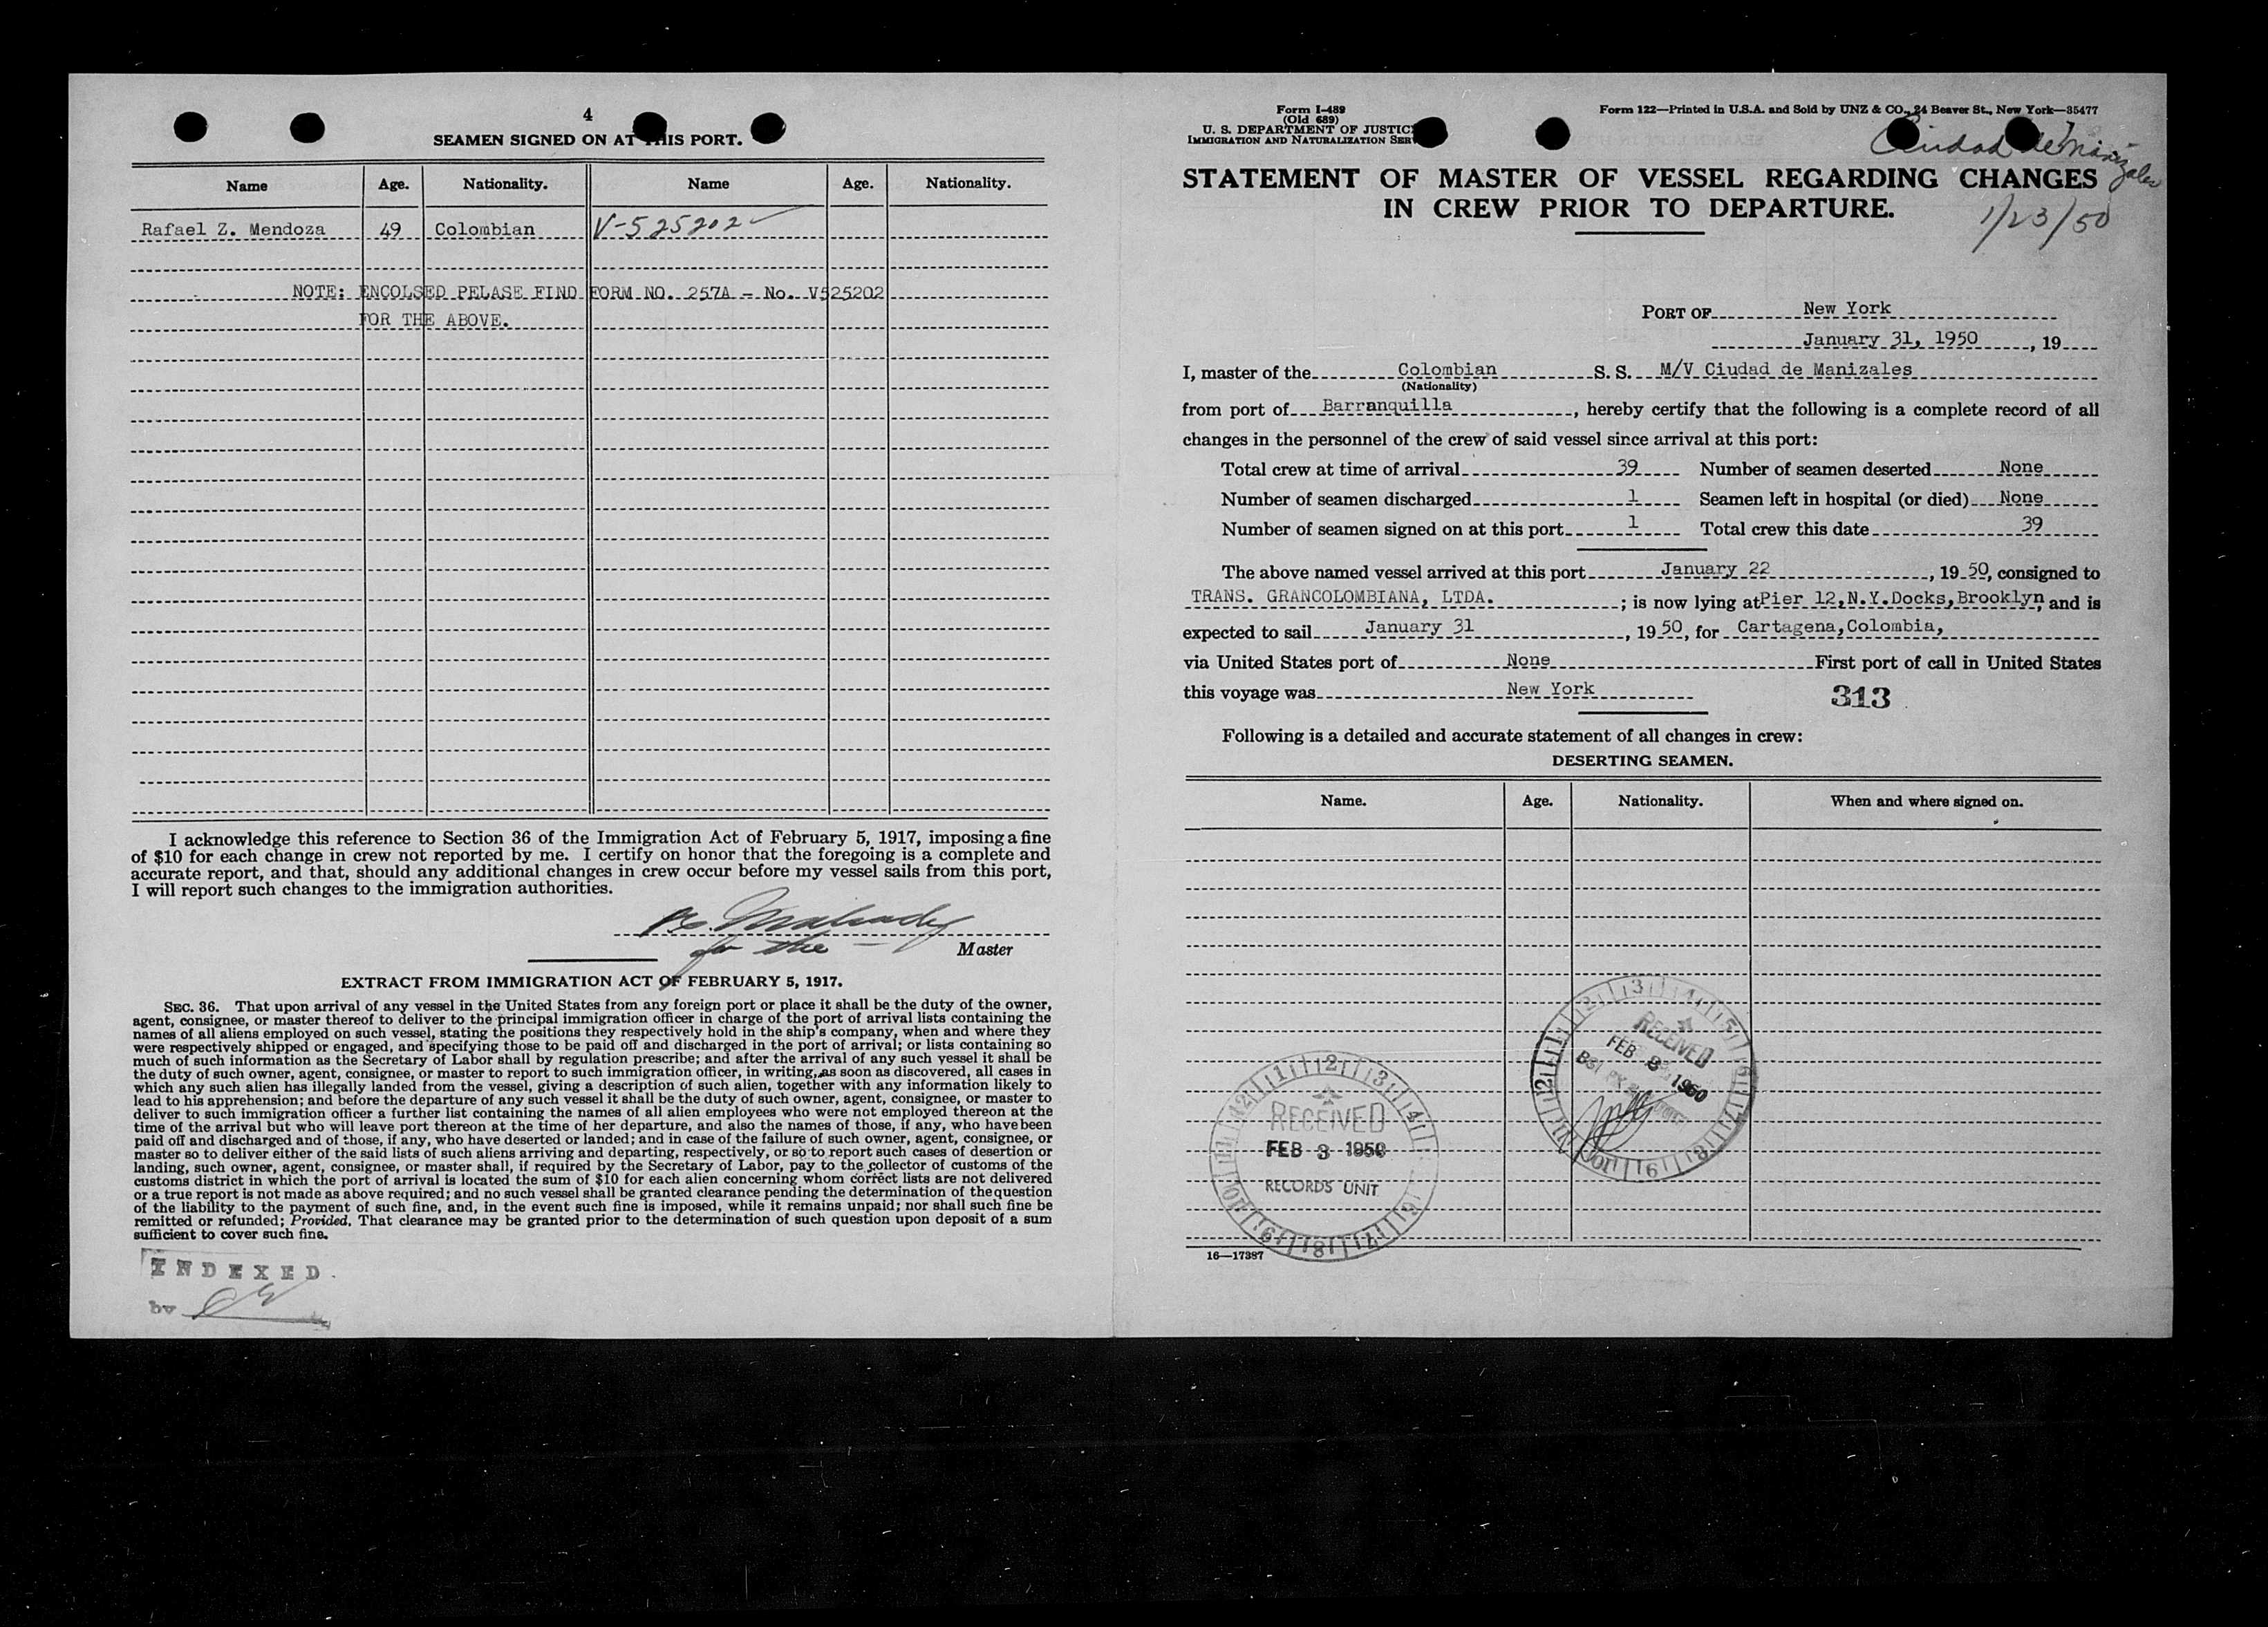 4
SEAMEN SIGNED ON AT THIS PORT.
Name Age. Nationality. Name Age. Nationality.
Rafael Z. Mendoza 49 Colombian V-525202
NOTE: ENCOLSED PELASE FIND FORM NO. 257A - No. V525202
FOR THE ABOVE.
I acknowledge this reference to Section 36 of the Immigration Act of February 5, 1917, imposing a fine
of $10 for each change in crew not reported by me. I certify on honor that the foregoing is a complete and
accurate report, and that, should any additional changes in crew occur before my vessel sails from this port,
I will report such changes to the immigration authorities.
for the Master
EXTRACT FROM IMMIGRATION ACT OF FEBRUARY 5, 1917.
SEC. 36. That upon arrival of any vessel in the United States from any foreign port or place it shall be the duty of the owner,
agent, consignee, or master thereof to deliver to the principal immigration officer in charge of the port of arrival lists containing the
names of all aliens employed on such vessel, stating the positions they respectively hold in the ship's company, when and where they
were respectively shipped or engaged, and specifying those to be paid off and discharged in the port of arrival; or lists containing so
much of such information as the Secretary of Labor shall by regulation prescribe; and after the arrival of any such vessel it shall be
the duty of such owner, agent, consignee, or master to report to such immigration officer, in writing, as soon as discovered, all cases in
which any such alien has illegally landed from the vessel, giving a description of such alien, together with any information likely to
lead to his apprehension; and before the departure of any such vessel it shall be the duty of such owner, agent, consignee, or master to
deliver to such immigration officer a further list containing the names of all alien employees who were not employed thereon at the
time of the arrival but who will leave port thereon at the time of her departure, and also the names of those, if any, who have been
paid off and discharged and of those, if any, who have deserted or landed; and in case of the failure of such owner, agent, consignee, or
master so to deliver either of the said lists of such aliens arriving and departing, respectively, or so to report such cases of desertion or
landing, such owner, agent, consignee, or master shall, if required by the Secretary of Labor, pay to the collector of customs of the
customs district in which the port of arrival is located the sum of $10 for each alien concerning whom correct lists are not delivered
or a true report is not made as above required; and no such vessel shall be granted clearance pending the determination of the question
of the liability to the payment of such fine, and, in the event such fine is imposed, while it remains unpaid; nor shall such fine be
remitted or refunded; Provided, That clearance may be granted prior to the determination of such question upon deposit of a sum
sufficient to cover such fine.
INDEXED
by
Form I-489
(Old 689)
U. S. DEPARTMENT OF JUSTICE
IMMIGRATION AND NATURALIZATION SERV
Form 122—Printed in U.S.A. and Sold by UNZ & CO., 24 Beaver St., New York—35477
Ciudad de Manizales
1/23/50
STATEMENT OF MASTER OF VESSEL REGARDING CHANGES
IN CREW PRIOR TO DEPARTURE.
PORT OF New York
January 31, 1950, 19
I, master of the Colombian S. S. M/V Ciudad de Manizales
(Nationality)
from port of Barranquilla, hereby certify that the following is a complete record of all
changes in the personnel of the crew of said vessel since arrival at this port:
Total crew at time of arrival 39 Number of seamen deserted None
Number of seamen discharged 1 Seamen left in hospital (or died) None
Number of seamen signed on at this port 1 Total crew this date 39
The above named vessel arrived at this port January 22, 19 50, consigned to
TRANS. GRANCOLOMBIANA, LTDA.; is now lying at Pier 12, N.Y.Docks, Brooklyn and is
expected to sail January 31, 19 50, for Cartagena, Colombia,
via United States port of None First port of call in United States
this voyage was New York
313
Following is a detailed and accurate statement of all changes in crew:
DESERTING SEAMEN.
Name. Age. Nationality. When and where signed on.
RECEIVED
FEB 3 1950
BSI
RECEIVED
FEB 3 1950
RECORDS UNIT
16—17387